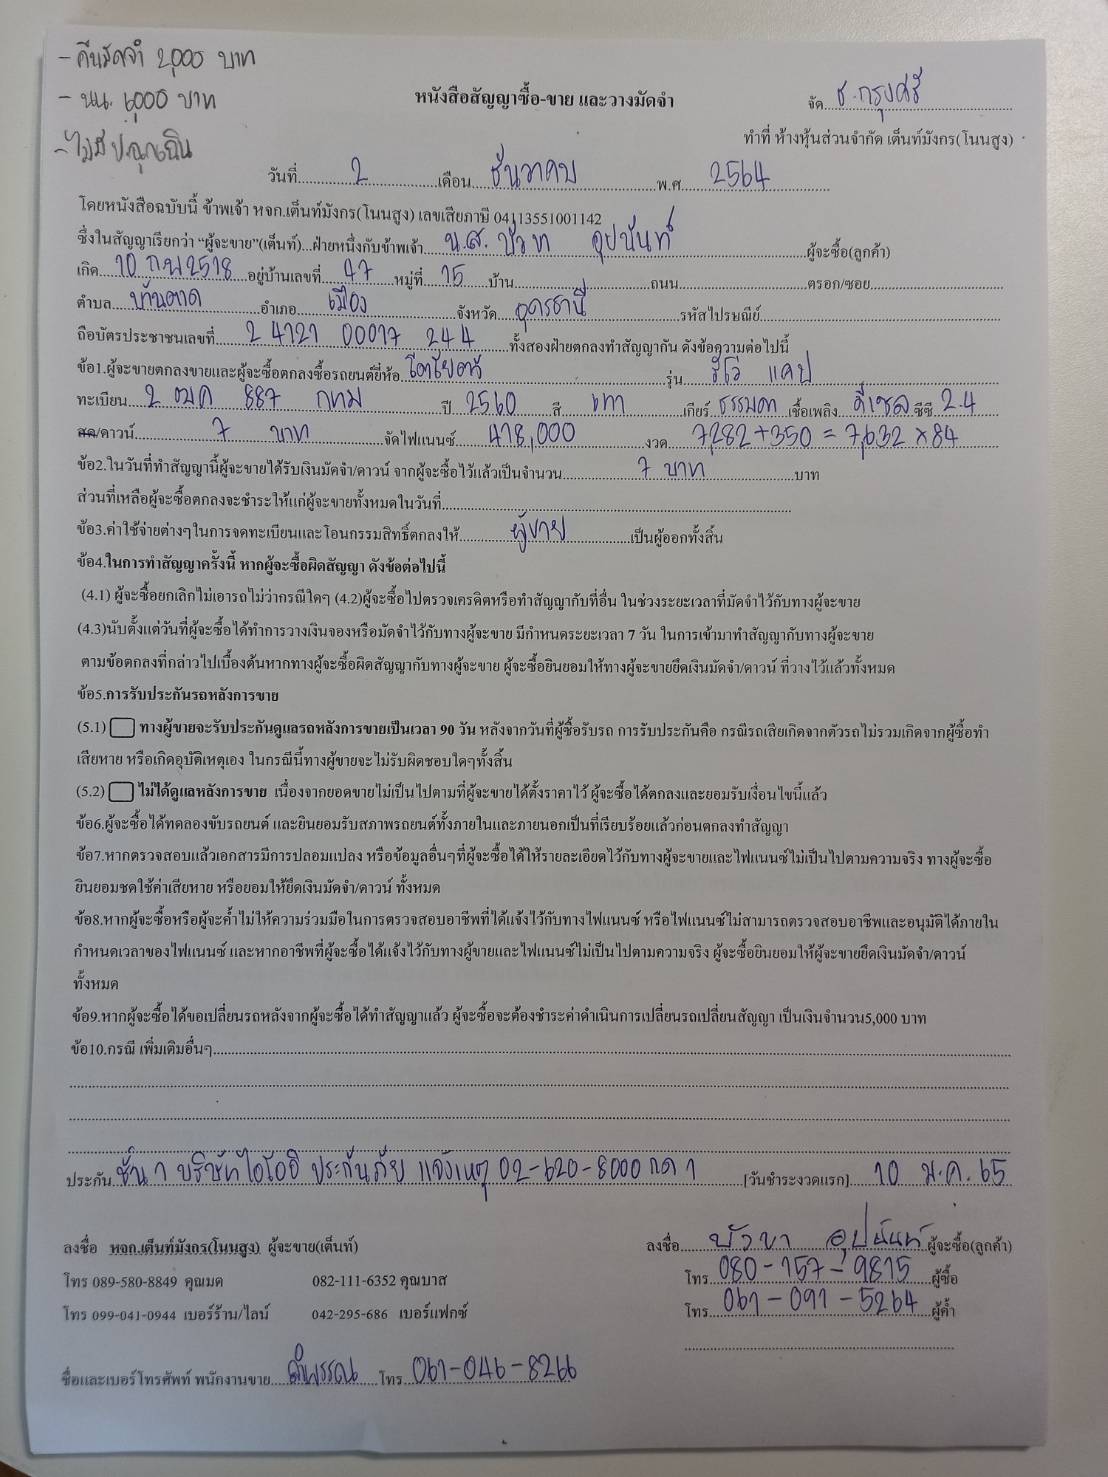 - คืนมัดจำ 2,000 บาท
- นน. 6000 บาท
- ไม่มี ปณ.ฉุกเฉิน
หนังสือสัญญาซื้อ-ขาย และวางมัดจำ
จัด ธ.กรุงศรี
ทำที่ ห้างหุ้นส่วนจำกัด เต็นท์มังกร(โนนสูง)
วันที่ 2 เดือน ธันวาคม พ.ศ 2564
โดยหนังสือฉบับนี้ ข้าพเจ้า หจก.เต็นท์มังกร(โนนสูง) เลขเสียภาษี 04113551001142
ซึ่งในสัญญาเรียกว่า "ผู้จะขาย"(เต็นท์)...ฝ่ายหนึ่งกับข้าพเจ้า น.ส. อุปนันท์ ผู้จะซื้อ(ลูกค้า)
เกิด 10 กพ 2518 อยู่บ้านเลขที่ 47 หมู่ที่ 15 บ้าน ถนน ตรอก/ซอย
ตำบล บ้านตาด อำเภอ เมือง จังหวัด อุดรธานี รหัสไปรษณีย์
ถือบัตรประชาชนเลขที่ 2 4121 00017 24 4 ทั้งสองฝ่ายตกลงทำสัญญากัน ดังข้อความต่อไปนี้
ข้อ1.ผู้จะขายตกลงขายและผู้จะซื้อตกลงซื้อรถยนต์ยี่ห้อ โตโยต้า รุ่น รีโว่ แคป
ทะเบียน 2 ฒค 887 กทม ปี 2560 สี เทา เกียร์ ธรรมดา เชื้อเพลิง ดีเซล ซีซี 2.4
สด/ดาวน์ 7 บาท จัดไฟแนนซ์ 478,000 งวด 7,282+350 = 7,632 × 84
ข้อ2.ในวันที่ทำสัญญานี้ผู้จะขายได้รับเงินมัดจำ/ดาวน์ จากผู้จะซื้อไว้แล้วเป็นจำนวน 7 บาท บาท
ส่วนที่เหลือผู้จะซื้อตกลงจะชำระให้แก่ผู้จะขายทั้งหมดในวันที่
ข้อ3.ค่าใช้จ่ายต่างๆในการจดทะเบียนและโอนกรรมสิทธิ์ตกลงให้ ผู้ขาย เป็นผู้ออกทั้งสิ้น
ข้อ4.ในการทำสัญญาครั้งนี้ หากผู้จะซื้อผิดสัญญา ดังข้อต่อไปนี้
(4.1) ผู้จะซื้อยกเลิกไม่เอารถไม่ว่ากรณีใดๆ (4.2)ผู้จะซื้อไปตรวจเครดิตหรือทำสัญญากับที่อื่น ในช่วงระยะเวลาที่มัดจำไว้กับทางผู้จะขาย
(4.3)นับตั้งแต่วันที่ผู้จะซื้อได้ทำการวางเงินจองหรือมัดจำไว้กับทางผู้จะขาย มีกำหนดระยะเวลา 7 วัน ในการเข้ามาทำสัญญากับทางผู้จะขาย
ตามข้อตกลงที่กล่าวไปเบื้องต้นหากทางผู้จะซื้อผิดสัญญากับทางผู้จะขาย ผู้จะซื้อยินยอมให้ทางผู้จะขายยึดเงินมัดจำ/ดาวน์ ที่วางไว้แล้วทั้งหมด
ข้อ5.การรับประกันรถหลังการขาย
(5.1) ทางผู้ขายจะรับประกันดูแลรถหลังการขายเป็นเวลา 90 วัน หลังจากวันที่ผู้ซื้อรับรถ การรับประกันคือ กรณีรถเสียเกิดจากตัวรถไม่รวมเกิดจากผู้ซื้อทำ
เสียหาย หรือเกิดอุบัติเหตุเอง ในกรณีนี้ทางผู้ขายจะไม่รับผิดชอบใดๆทั้งสิ้น
(5.2) ไม่ได้ดูแลหลังการขาย เนื่องจากยอดขายไม่เป็นไปตามที่ผู้จะขายได้ตั้งราคาไว้ ผู้จะซื้อได้ตกลงและยอมรับเงื่อนไขนี้แล้ว
ข้อ6.ผู้จะซื้อได้ทดลองขับรถยนต์ และยินยอมรับสภาพรถยนต์ทั้งภายในและภายนอกเป็นที่เรียบร้อยแล้วก่อนตกลงทำสัญญา
ข้อ7.หากตรวจสอบแล้วเอกสารมีการปลอมแปลง หรือข้อมูลอื่นๆที่ผู้จะซื้อได้ให้รายละเอียดไว้กับทางผู้จะขายและไฟแนนซ์ไม่เป็นไปตามความจริง ทางผู้จะซื้อ
ยินยอมชดใช้ค่าเสียหาย หรือยอมให้ยึดเงินมัดจำ/ดาวน์ ทั้งหมด
ข้อ8.หากผู้จะซื้อหรือผู้จะค้ำไม่ให้ความร่วมมือในการตรวจสอบอาชีพที่ได้แจ้งไว้กับทางไฟแนนซ์ หรือไฟแนนซ์ไม่สามารถตรวจสอบอาชีพและอนุมัติได้ภายใน
กำหนดเวลาของไฟแนนซ์ และหากอาชีพที่ผู้จะซื้อได้แจ้งไว้กับทางผู้ขายและไฟแนนซ์ไม่เป็นไปตามความจริง ผู้จะซื้อยินยอมให้ผู้จะขายยึดเงินมัดจำ/ดาวน์
ทั้งหมด
ข้อ9.หากผู้จะซื้อได้ขอเปลี่ยนรถหลังจากผู้จะซื้อได้ทำสัญญาแล้ว ผู้จะซื้อจะต้องชำระค่าดำเนินการเปลี่ยนรถเปลี่ยนสัญญา เป็นเงินจำนวน5,000 บาท
ข้อ10.กรณี เพิ่มเติมอื่นๆ
ประกัน ชั้น 1 บริษัทไอโออิ ประกันภัย แจ้งเหตุ 02-620-8000 กด 1 [วันชำระงวดแรก] 10 ม.ค. 65
ลงชื่อ หจก.เต็นท์มังกร(โนนสูง) ผู้จะขาย(เต็นท์) ลงชื่อ อุปนันท์ ผู้จะซื้อ(ลูกค้า)
โทร 089-580-8849 คุณมด 082-111-6352 คุณบาส โทร 080-157-9815 ผู้ซื้อ
โทร 099-041-0944 เบอร์ร้าน/ไลน์ 042-295-686 เบอร์แฟกซ์ โทร 061-091-5264 ผู้ค้ำ
ชื่อและเบอร์โทรศัพท์ พนักงานขาย โทร 061-046-8266